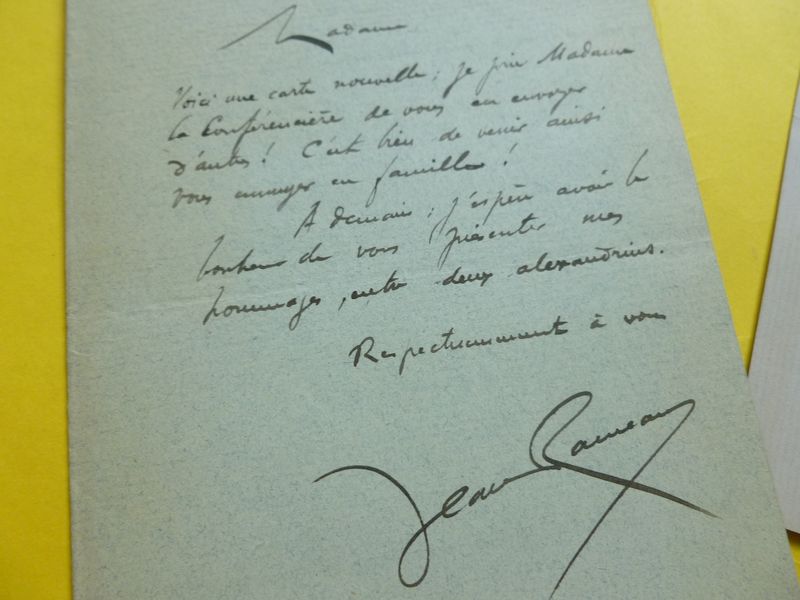 Madame
Voici une carte nouvelle ; je prie Madame
la Conférencière de vous en envoyer
d'autres ! C'est bien de venir ainsi
vous ennuyer en famille !
A demain ; j'espère avoir le
bonheur de vous présenter mes
hommages, entre deux alexandrins.
Respectueusement à vous
Jean Rameau